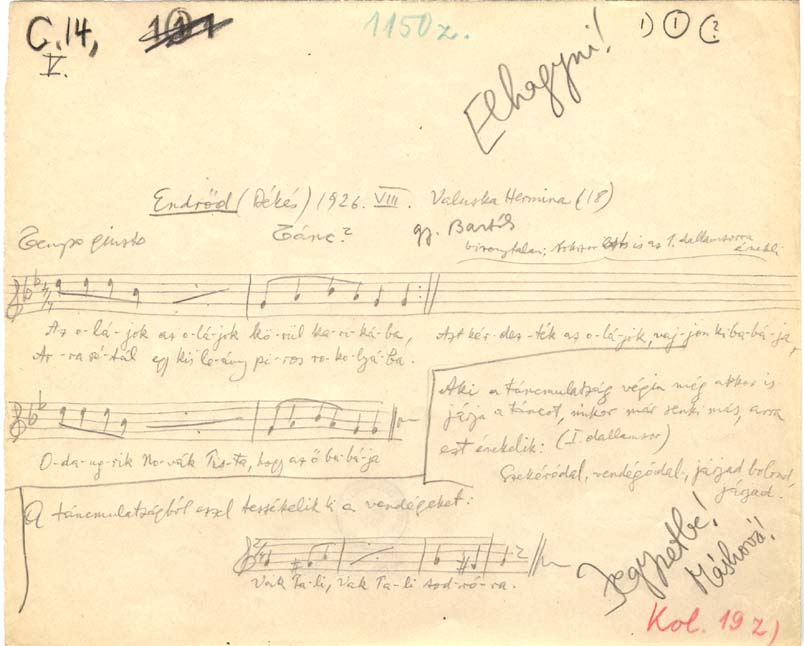 C.14,
V.
1150z.
1) ① (?
Elhagyni!
Endrőd (Békés) 1926. VIII. Valuska Hermina (18)
Tempo giusto Tánc? gy. Bartók
bizonytalan; az 1. dallamsorra énekli
Az o-lá-jok az o-lá-jok kö-rül ka-ri-ká-ba,
Ar-ra sé-tál egy kis le-ány pi-ros ro-ko-lyá-ba.
Azt kér-dez-ték az o-lá-jok, vaj-jon ki ba-bá-ja,
O-da ug-rik No-vák Pis-ta, hogy az ő ba-bá-ja
Aki a táncmulatság végin még akkor is
járja a táncot, mikor már senki más, arra
ezt éneklik: (I. dallamsor)
Szekéródal, vendégódal, járjad bolond,
járjad.
A táncmulatságból ezzel tessékelik ki a vendégeket:
Vak Pa-li, Vak Pa-li sod-ró-ra.
Jegyzetbe!
Máshová!
Kol. 19 z)